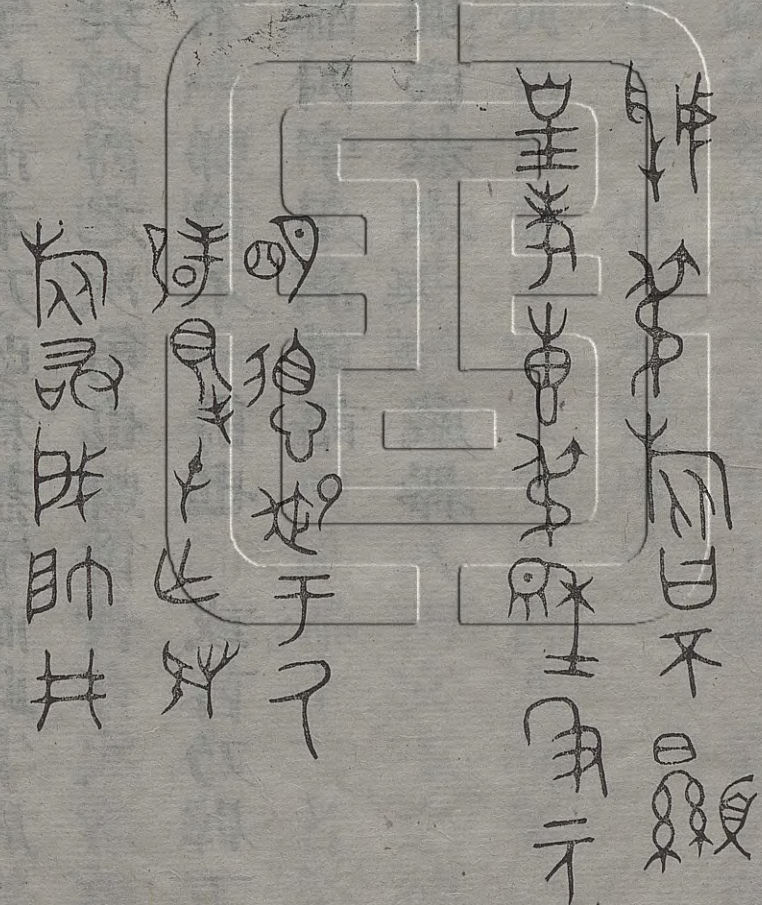 虢叔旅曰不顯
皇考叀叔穆秉元
明德御于氒
辟得屯亡敃
旅敢肈帥井